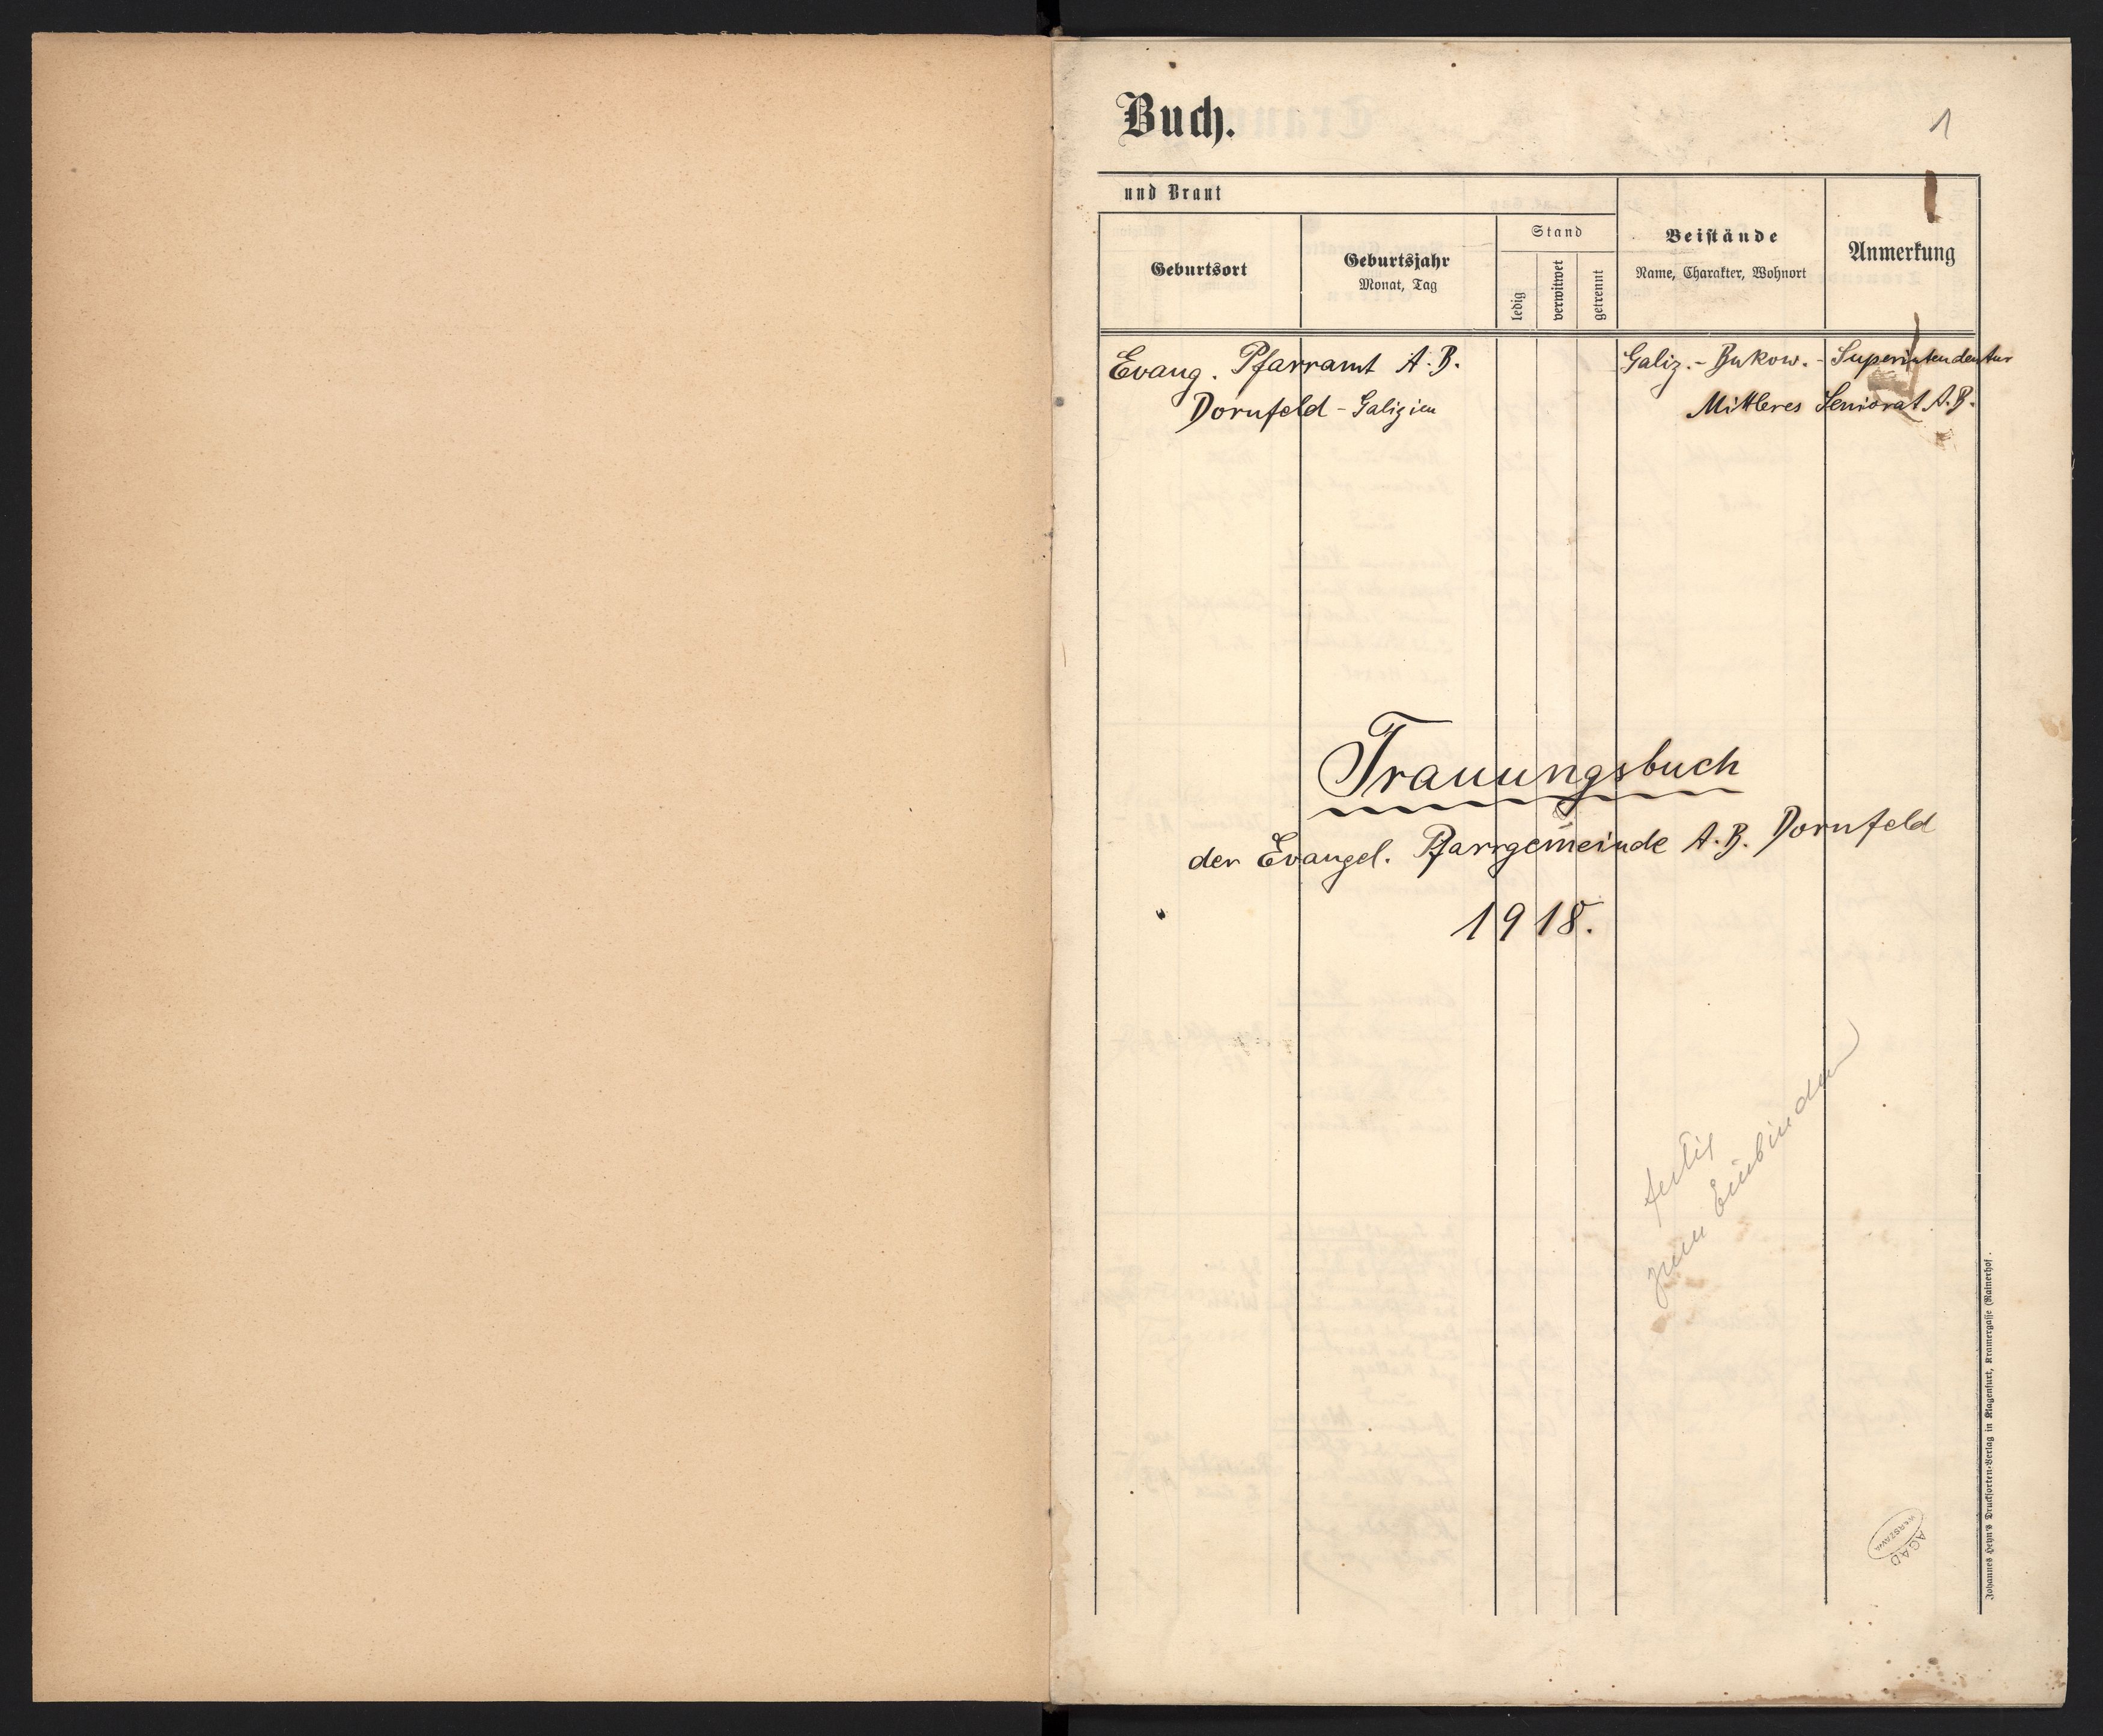 Buch.
1
und Braut
Geburtsort
Geburtsjahr
Monat, Tag
Stand
ledig
verwitwet
getrennt
Beistände
Name, Charakter, Wohnort
Anmerkung
Evang. Pfarramt A. B.
Dornfeld - Galizien
Galiz. - Bukow. - Superintendentur
Mittleres Seniorat A. B.
Trauungsbuch
der Evangel. Pfarrgemeinde A. B. Dornfeld
1918.
fertig
zum Einbinden
Johannes Heyn's Drucksorten-Verlag in Klagenfurt, Kramergasse (Rainerhof.
AGAD
WARSZAWA